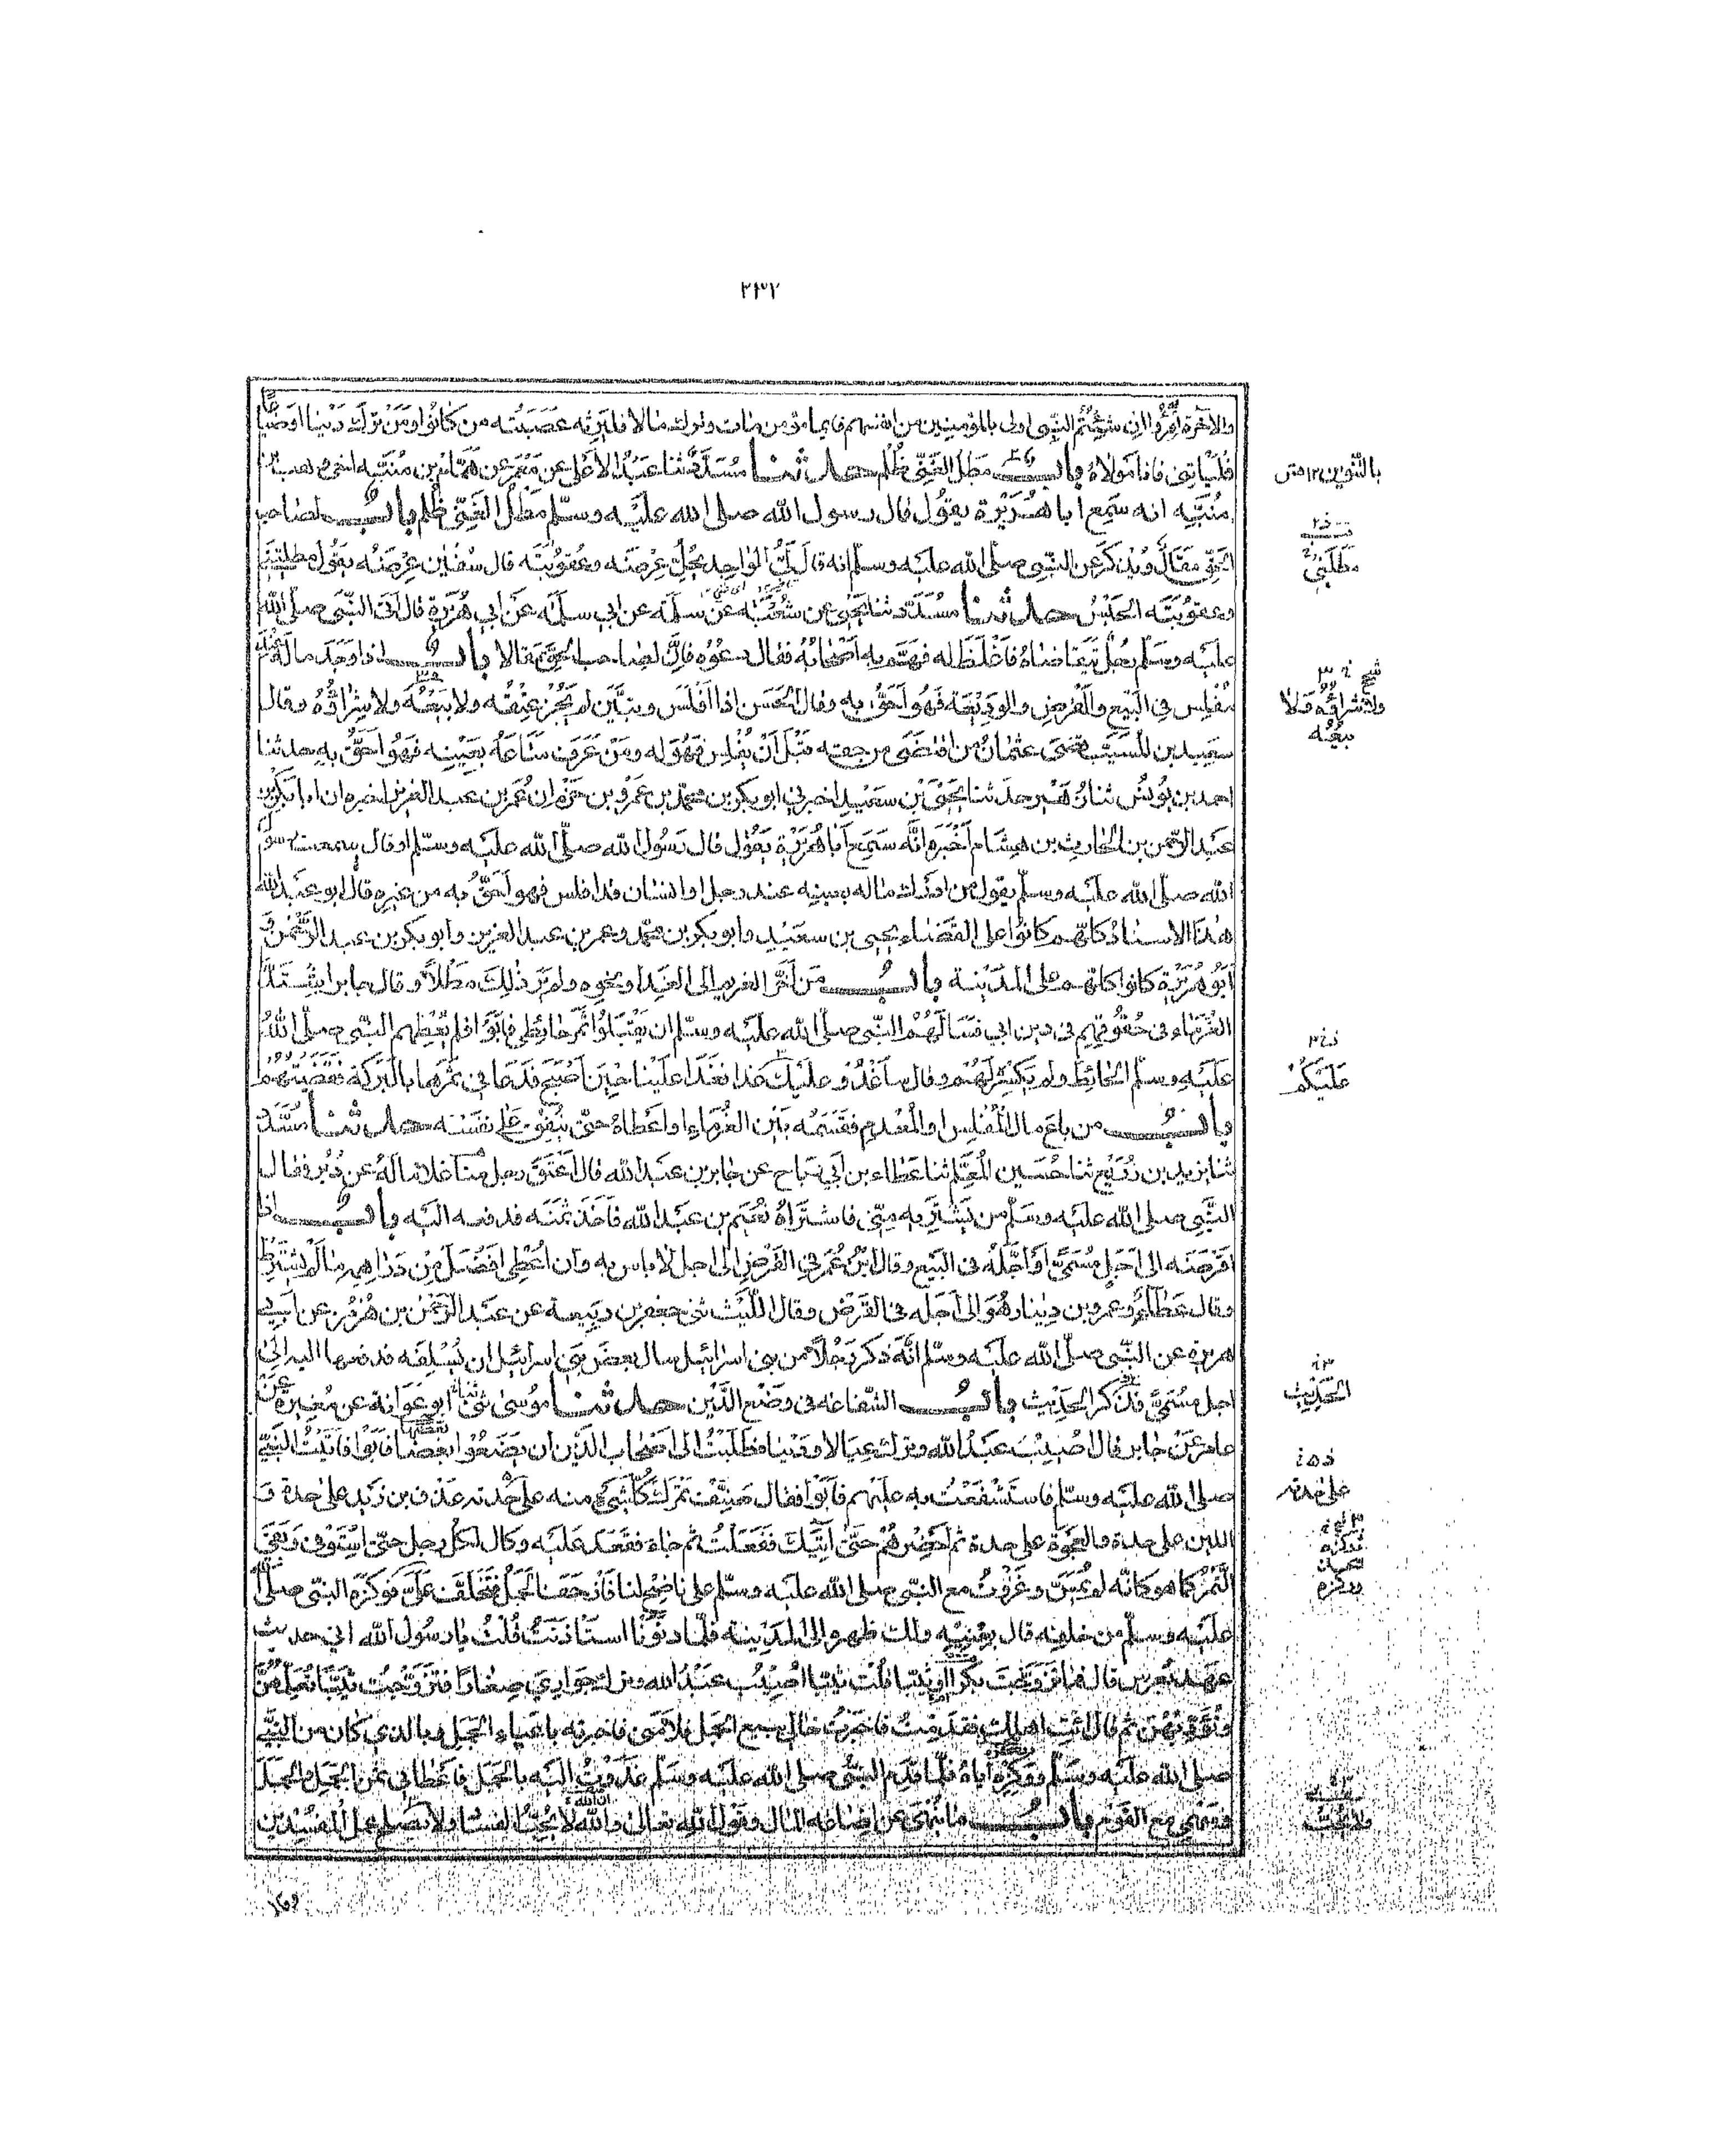 ٢٣٢
والاخرة اقرؤا ان شئتم النبي اولى بالمؤمنين من انفسهم فايما مؤمن مات وترك مالا فليرثه عصبته من كانوا ومن ترك دينا او ضياعا
فليأتني فانا مولاه باب مطل الغني ظلم حدثنا مسدد ثنا عبد الاعلى عن معمر عن همام بن منبه اخي وهب بن
منبه انه سمع ابا هريرة يقول قال رسول الله صلى الله عليه وسلم مطل الغني ظلم باب لصاحب
الحق مقال ويذكر عن النبي صلى الله عليه وسلم انه قال لي الواجد يحل عرضه وعقوبته قال سفين عرضه يقول مطلتني
وعقوبته الحبس حدثنا مسدد ثنا يحيى عن شعبة عن سلمة عن ابي سلمة عن ابي هريرة قال اتى النبي صلى الله
عليه وسلم رجل يتقاضاه فاغلظ له فهم به اصحابه فقال دعوه فان لصاحب الحق مقالا باب اذا وجد ماله عند
مفلس في البيع والقرض والوديعة فهو احق به وقال الحسن اذا افلس وتبين لم يجز عتقه ولا بيعه ولا شراؤه وقال
سعيد بن المسيب قضى عثمان من اقتضى من حقه قبل ان يفلس فهو له ومن عرف متاعه بعينه فهو احق به حدثنا
احمد بن يونس ثنا زهير حدثنا يحيى بن سعيد اخبرني ابو بكر بن محمد بن عمرو بن حزم ان عمر بن عبد العزيز اخبره ان ابا بكر بن
عبد الرحمن بن الحارث بن هشام اخبره انه سمع ابا هريرة يقول قال رسول الله صلى الله عليه وسلم او قال سمعت رسول
الله صلى الله عليه وسلم يقول من ادرك ماله بعينه عند رجل او انسان قد افلس فهو احق به من غيره قال ابو عبد الله
هذا الاسناد كلهم كانوا على القضاء يحيى بن سعيد وابو بكر بن محمد وعمر بن عبد العزيز وابو بكر بن عبد الرحمن و
ابو هريرة كانوا كلهم على المدينة باب من اخر الغريم الى الغد او نحوه ولم ير ذلك مطلا وقال جابر اشتد
الغرماء في حقوقهم في دين ابي فسألهم النبي صلى الله عليه وسلم ان يقبلوا ثمر حائطي فابوا فلم يعطهم النبي صلى الله
عليه وسلم الحائط ولم يكسره لهم وقال ساغدو عليك غدا فغدا علينا حين اصبح فدعا في ثمرها بالبركة فقضيتهم
باب من باع مال المفلس او المعدم فقسمه بين الغرماء او اعطاه حتى ينفق على نفسه حدثنا مسدد
ثنا يزيد بن زريع ثنا حسين المعلم ثنا عطاء بن ابي رباح عن جابر بن عبد الله قال اعتق رجل منا غلاما له عن دبر فقال
النبي صلى الله عليه وسلم من يشتريه مني فاشتراه نعيم بن عبد الله فاخذ ثمنه فدفعه اليه باب اذا
اقرضه الى اجل مسمى او اجله في البيع وقال ابن عمر في القرض الى اجل لا باس به وان اعطي افضل من دراهمه ما لم يشترط
وقال عطاء وعمرو بن دينار هو الى اجله في القرض وقال الليث ثني جعفر بن ربيعة عن عبد الرحمن بن هرمز عن ابي
هريرة عن النبي صلى الله عليه وسلم انه ذكر رجلا من بني اسرائيل سال بعض بني اسرائيل ان يسلفه فدفعها اليه الى
اجل مسمى فذكر الحديث باب الشفاعة في وضع الدين حدثنا موسى ثني ابو عوانة عن مغيرة عن
عامر عن جابر قال اصيب عبد الله وترك عيالا ودينا فطلبت الى اصحاب الدين ان يضعوا بعضا فابوا فاتيت النبي
صلى الله عليه وسلم فاستشفعت به عليهم فابوا فقال صنف تمرك كل شيء منه على حدته عذق بن زيد على حدة و
اللين على حدة والعجوة على حدة ثم احضرهم حتى آتيك ففعلت ثم جاء فقعد عليه وكال لكل رجل حتى استوفى وبقي
التمر كما هو كانه لم يمس وغزوت مع النبي صلى الله عليه وسلم على ناضح لنا فازحف الجمل فتخلف علي فوكزه النبي صلى الله
عليه وسلم من خلفه قال بعنيه ولك ظهره الى المدينة فلما دنونا استأذنت قلت يا رسول الله اني حديث
عهد بعرس قال فما تزوجت بكرا او ثيبا قلت ثيبا اصيب عبد الله وترك جواري صغارا فتزوجت ثيبا تعلمهن
وتؤدبهن ثم قال ائت اهلك فقدمت فاخبرت خالي ببيع الجمل فلامني فاخبرته باعياء الجمل وبالذي كان من النبي
صلى الله عليه وسلم ووكزه اياه فلما قدم النبي صلى الله عليه وسلم غدوت اليه بالجمل فاعطاني ثمن الجمل والجمل
وسهمي مع القوم باب ما ينهى عن اضاعة المال وقول الله تعالى والله لا يحب الفساد ولا يصلح عمل المفسدين
بالتنوين
مطلتني
ولا شراؤه ولا
بيعه
عليكم
الحديث
على حدته